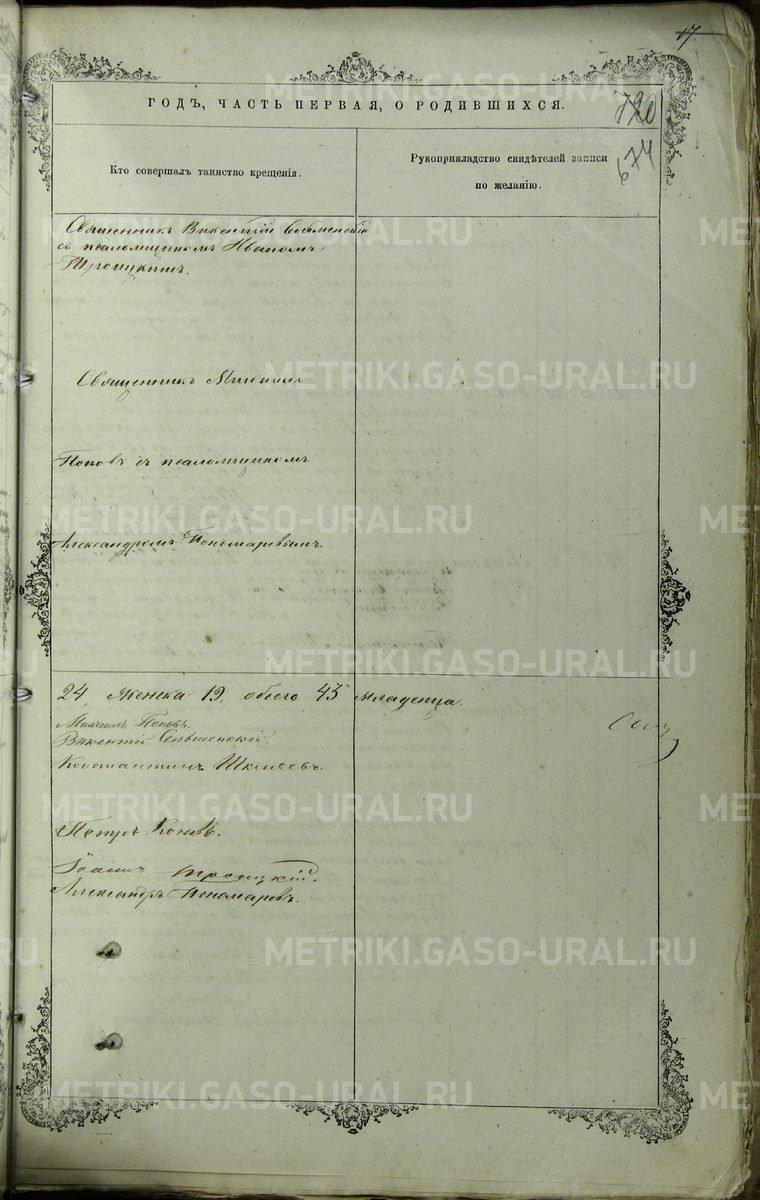 17
ГОДЪ, ЧАСТЬ ПЕРВАЯ, О РОДИВШИХСЯ.
720
674
Кто совершалъ таинство крещенія.
Рукоприкладство свидѣтелей записи
по желанію.
Священникъ Викентій
съ псаломщикомъ Иваномъ
Троицкимъ.
Священникъ Михаилъ
Поповъ съ псаломщикомъ
Александромъ Пономаревымъ.
24, женска 19, обоего 43 младенца.
Михаилъ Поповъ.
Викентій
Константинъ
Петръ
Іоаннъ Троицкій.
Александръ Пономаревъ.
METRIKI.GASO-URAL.RU